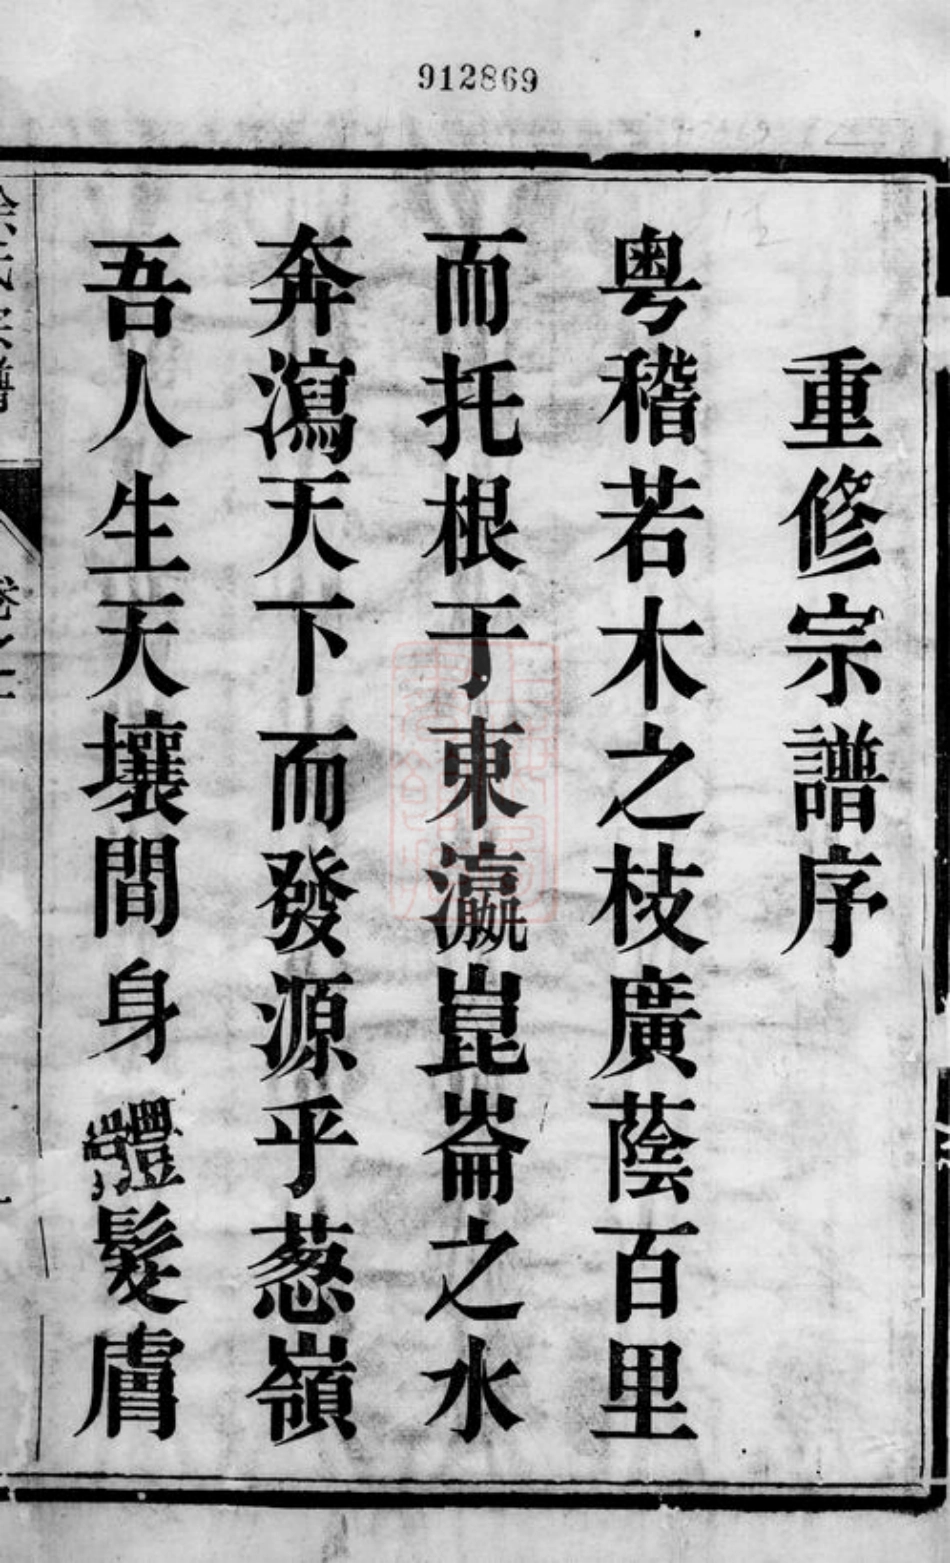 912869
重修宗譜序
粤稽若木之枝廣蔭百里
而托根于東瀛崑崙之水
奔瀉天下而發源乎葱嶺
吾人生天壤間身體髮膚
氏宗譜
卷之